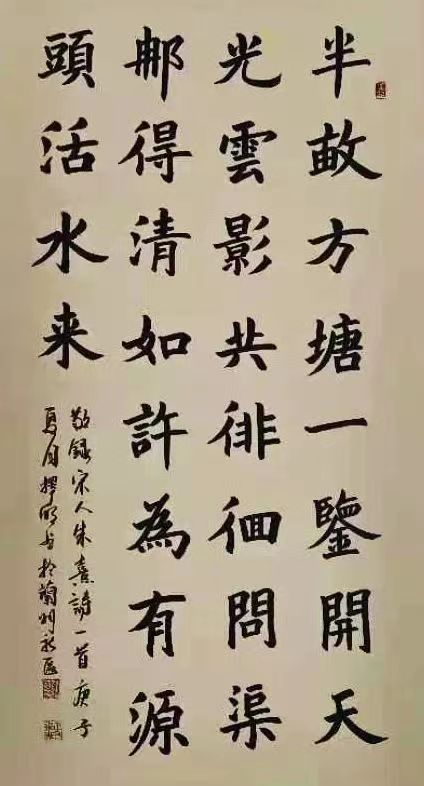 半畝方塘一鑒開天
光雲影共徘徊問渠
那得清如許為有源
頭活水来
敬録宋人朱熹詩一首庚子
夏月书於蘭州新區